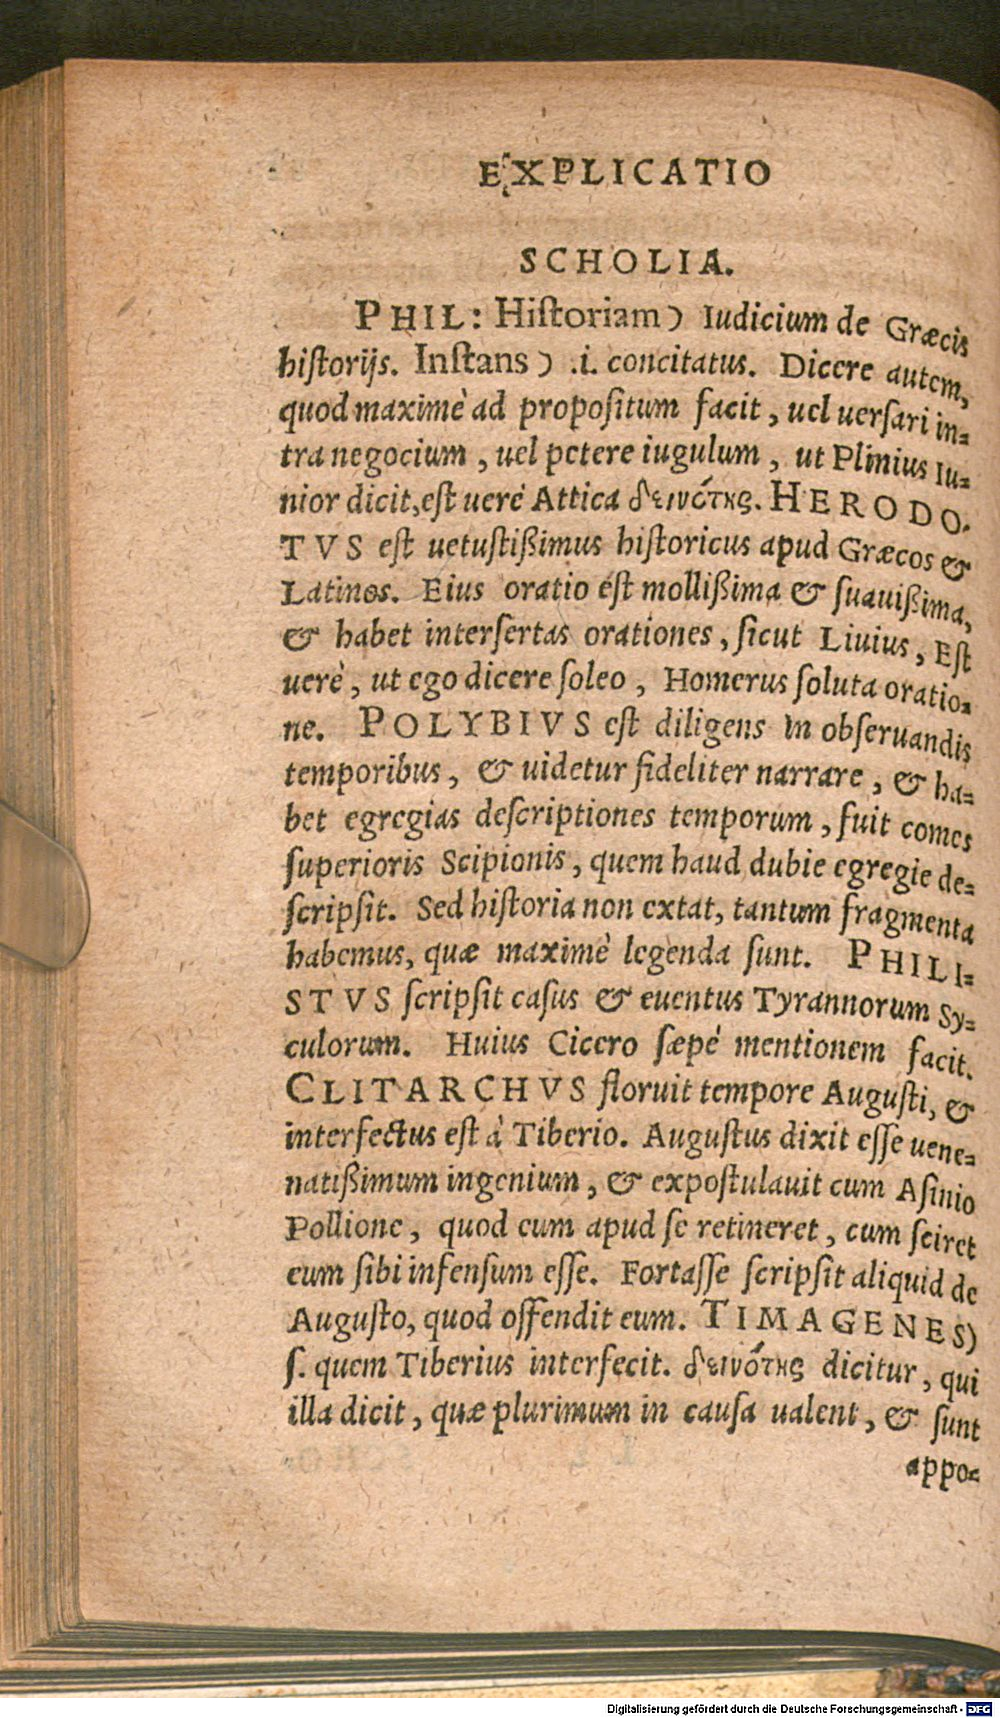 EXPLICATIO
SCHOLIA.
PHIL: Historiam) Iudicium de Græcis
historijs. Instans) .i. concitatus. Dicere autem,
quod maximè ad propositum facit, uel uersari in-
tra negocium, uel petere iugulum, ut Plinius Iu-
nior dicit, est uerè Attica δεινότης. HERODO-
TVS est uetustißimus historicus apud Græcos &
Latinos. Eius oratio est mollißima & suauißima,
& habet intersertas orationes, sicut Liuius, Est
uerè, ut ego dicere soleo, Homerus soluta oratio-
ne. POLYBIVS est diligens in obseruandis
temporibus, & uidetur fideliter narrare, & ha-
bet egregias descriptiones temporum, fuit comes
superioris Scipionis, quem haud dubie egregie de-
scripsit. Sed historia non extat, tantum fragmenta
habemus, quæ maximè legenda sunt. PHILI-
STVS scripsit casus & euentus Tyrannorum Sy-
culorum. Huius Cicero sæpè mentionem facit.
CLITARCHVS floruit tempore Augusti, &
interfectus est à Tiberio. Augustus dixit esse uene-
natißimum ingenium, & expostulauit cum Asinio
Pollione, quod eum apud se retineret, cum sciret
eum sibi infensum esse. Fortasse scripsit aliquid de
Augusto, quod offendit eum. TIMAGENES)
s. quem Tiberius interfecit. δεινότης dicitur, qui
illa dicit, quæ plurimum in causa ualent, & sunt
appo-
Digitalisierung gefördert durch die Deutsche Forschungsgemeinschaft - DFG